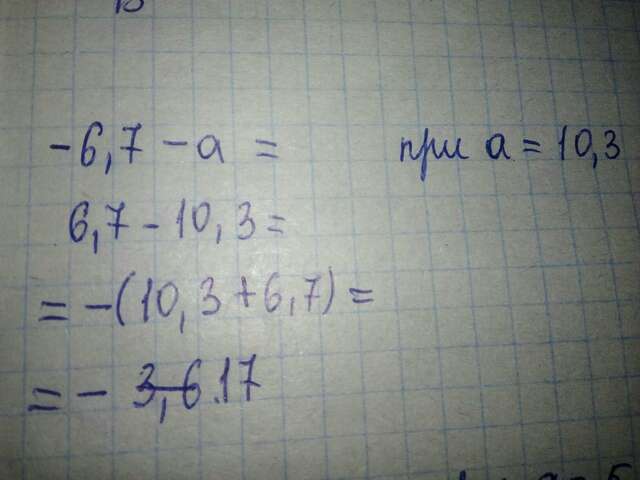 -6,7 - a =      при a = 10,3
6,7 - 10,3 =
= -(10,3 + 6,7) =
= - ~~3,6~~ 17